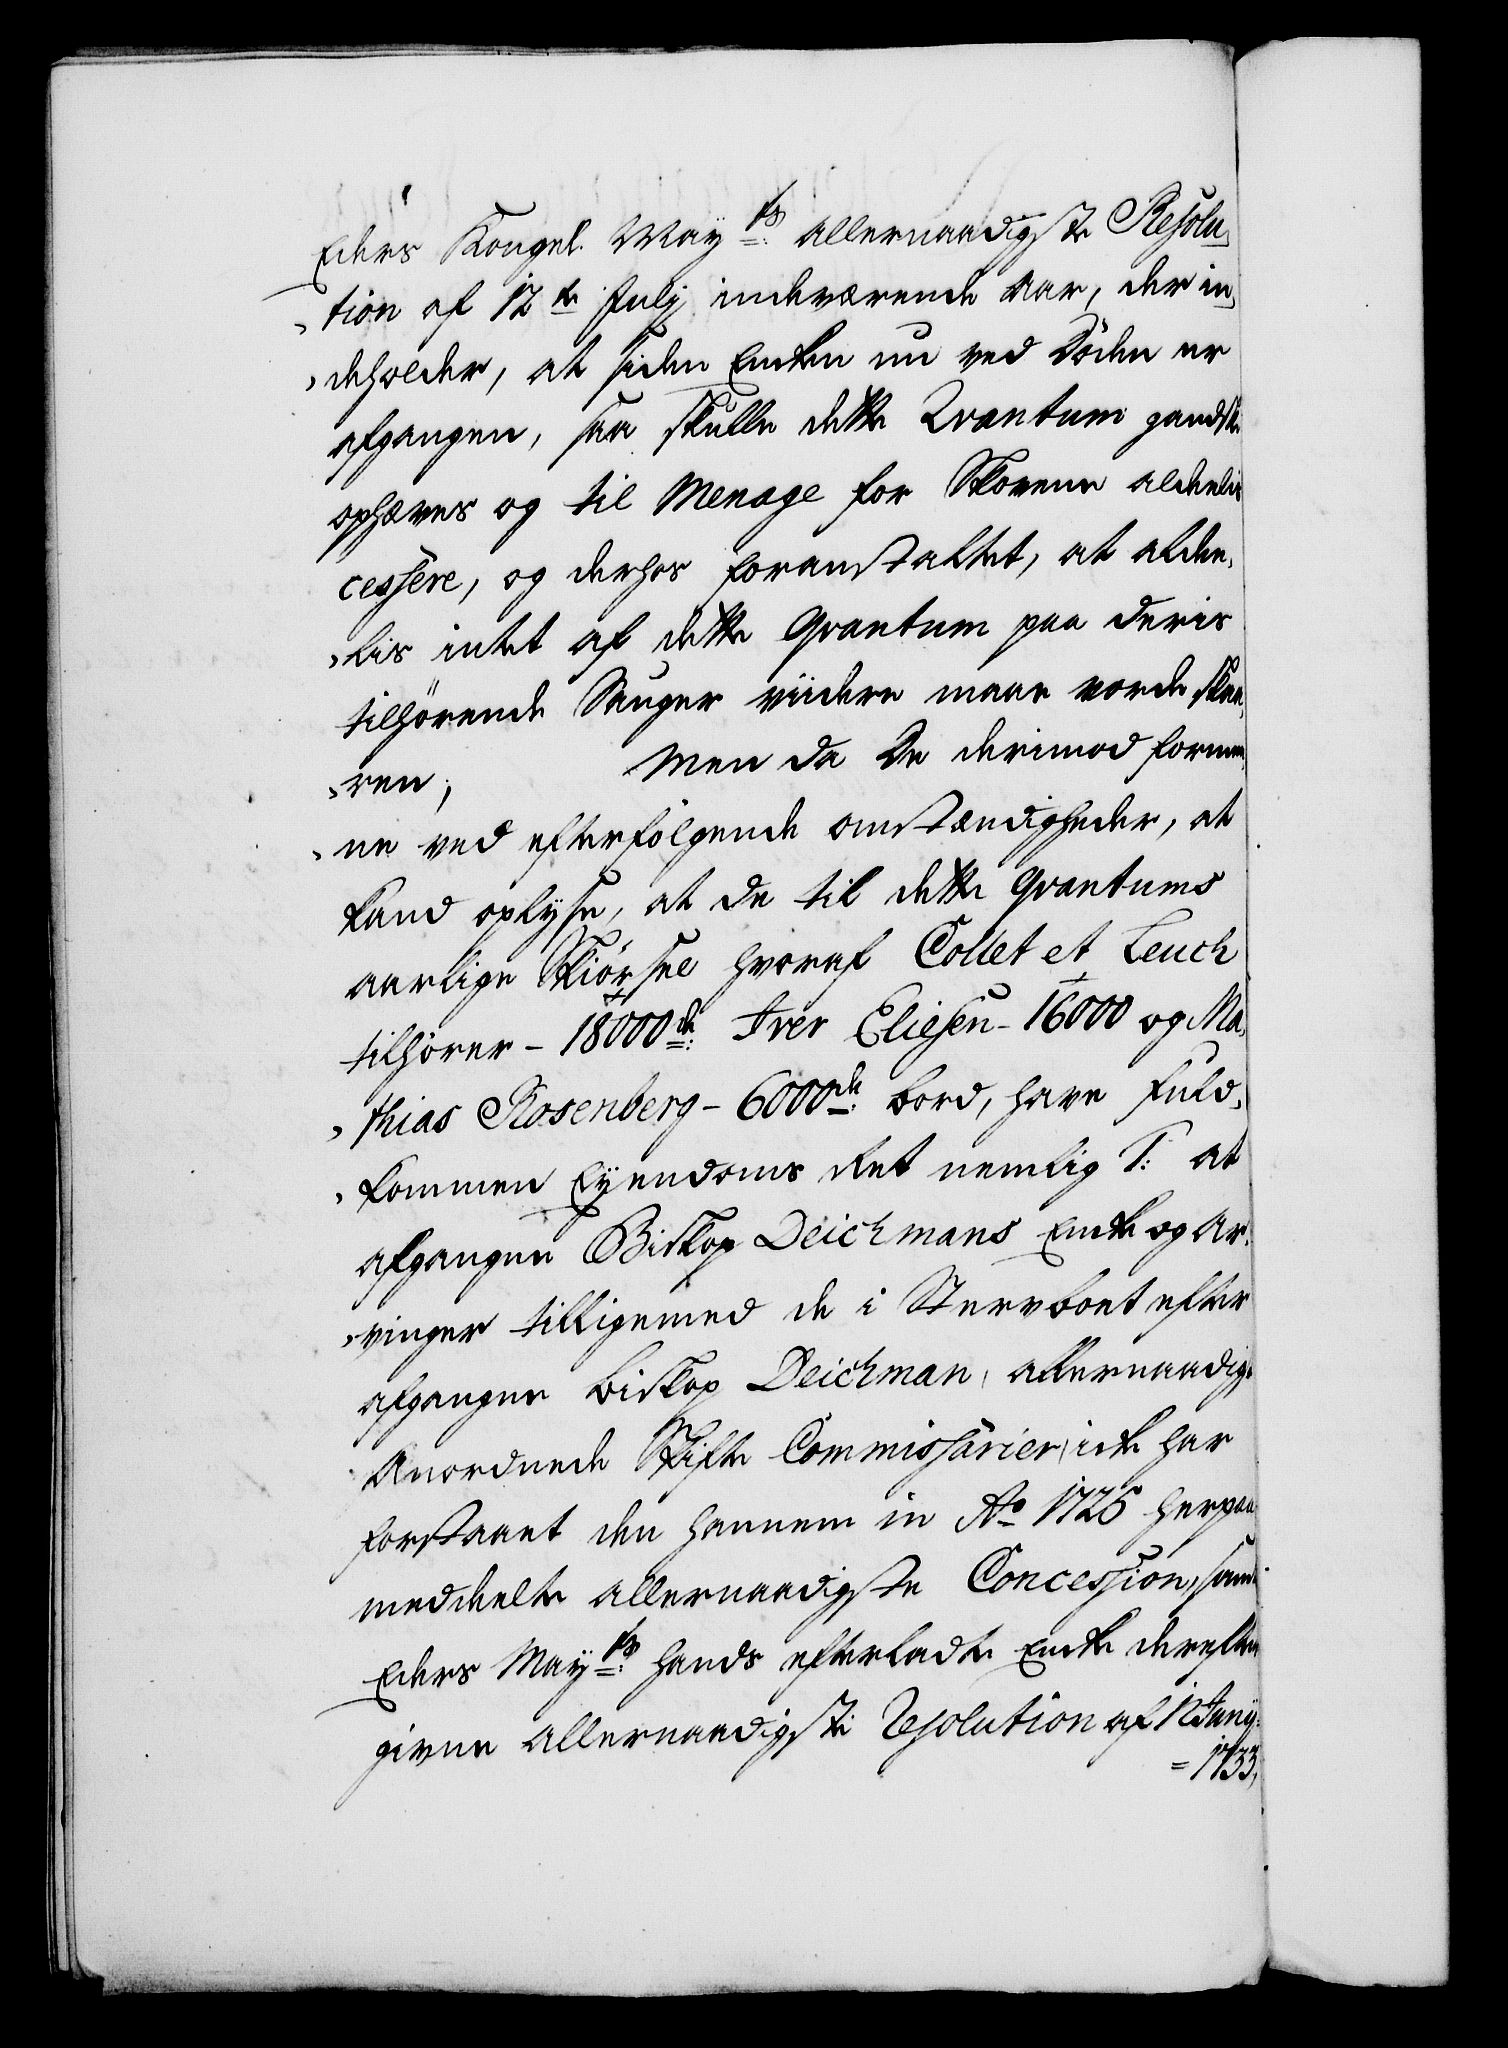 Eders Kongel. May:ts allernaadigste Resolu-
tion af 12te Julij indeværende Aar, der in-
deholder, at siden Encken nu ved Døden er
afgangen, saa skulle dette Qvantum gandske
ophæves og til Menage for Skovene aldeelis
cessere, og derhos foranstaltet, at aldee-
lis intet af dette Qvantum paa deris
tilhørende Sauger viidere maae vorde skaa-
ren; Men da De derimod formee-
ne ved efterfølgende omstændigheder, at
kand oplyse, at de til dette Qvantums
aarlige Skiørsel hvoraf Collet et Leuch
tilhører - 18000de: Iver Eliesen - 16000 og Ma-
thias Rosenberg - 6000de: bord, have fuld-
kommen Eyendoms Ret nemlig I: at
afgangne Biskop Deichmans Encke og Ar-
vinger tilligemed de i Stervboet efter
afgangne Biskop Deichman, allernaadigst
Anordnede Skifte Commissarier, icke har
forstaaet den hannem in Ao 1725 herpaa
meddeelte allernaadigste Concession, samt
Eders May:ts hands efterladte Encke derefter
givne allernaadigste Resolution af 12 Junij
= 1733,